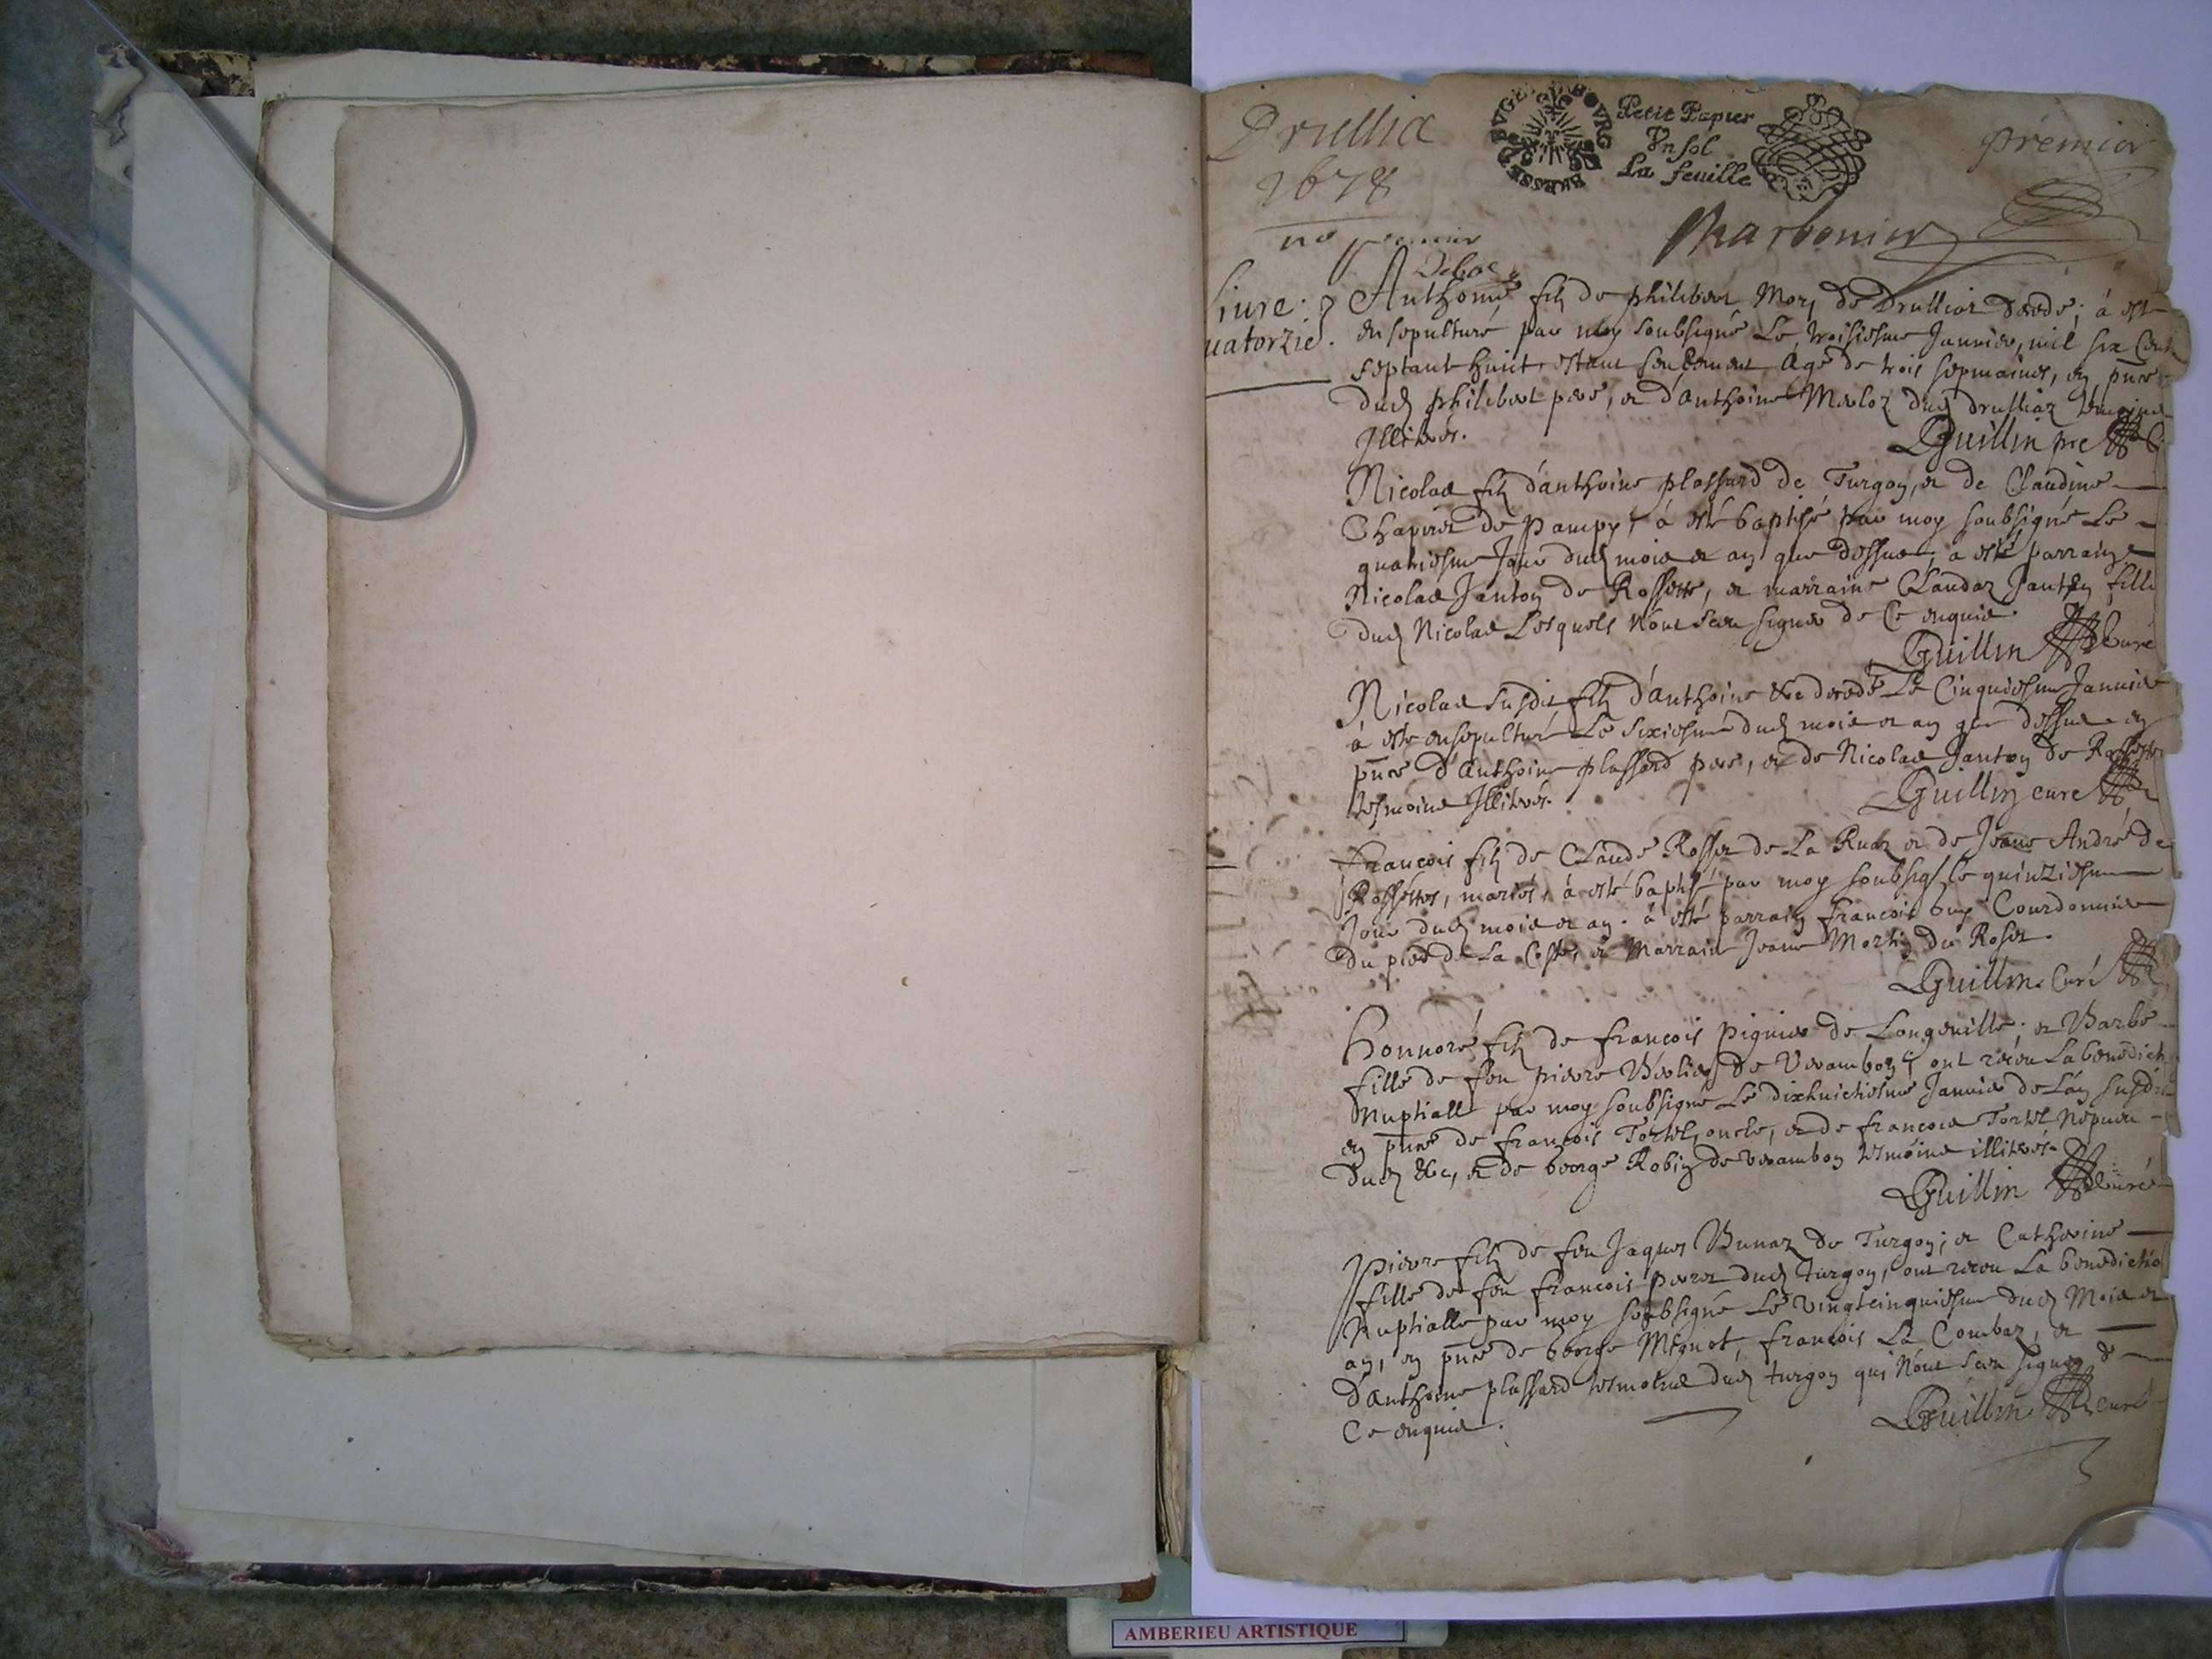 Druillia
1678
premier
BUGEY BOURG BRESSE
Petit Papier
Un sol
La feuille
premier
Charbonier
liure :
uatorzie .
Anthoine filz de philibert Mory de Drulliaz decedé ; á esté
ensepulturé par moy soubsigné Le troisiesme Januier, mil six Cent
septant huict, estant seulement Agé de trois sepmaines, en pnce
dud philibert pere, et d'anthoine Merloz dud drulliaz tesmoins
Illiteres.
Guillin pre
Nicolas filz d'anthoine plassard de Turgon, et de Claudine
Chapirot de pampy, á esté baptisé par moy soubsigné Le
quatriesme Jour dud mois et an que dessus, a esté parrain
Nicolas Janton de Rossette, et marraine Claudaz Janton fille
dud Nicolas Lesquels n'ont sceu signer de Ce enquis.
Guillin Curé
Nicolas susdit filz d'anthoine &c decedé Le Cinquiesme Januier
á esté ensepulturé Le sixiesme dud mois et an que dessus en
pnce d'anthoine plassard pere, et de Nicolas Janton de Rossette
tesmoins Illiteres.
Guillin curé
Francois filz de Claude Rosset de La Ruaz et de Jeane André de
Rossettes, mariés, á esté baptisé par moy soubsig le quinziesme
Jour dud mois et an. á esté parrain francois Courdonnier
du pied de La Coste, et Marraine Jeane Martin du Roset.
Guillin Curé
Honnoré filz de francois pignier de Longeuille ; et Barbe
fille de feu pierre de Varambon ; ont receu La benedict
Nuptialle par moy soubsigné Le dixhuictiesme Januier de L'an susd
en pnce de francois Tortel, oncle, et de francois Tortel Nepueu
dud &c, et de George Robin de varambon tesmoins illiteres.
Guillin Curé
Pierre filz de feu Jaques Bunaz de Turgon ; et Catherine
fille de feu francois perret dud Turgon, ont receu La benedictio
Nuptialle par moy soubsigné Le vingtcinquiesme dud Mois et
an, en pnce de George Mignot, francois La Combaz, et
d'anthoine plassard tesmoins dud turgon qui n'ont sceu signer de
Ce enquis.
Guillin curé
AMBERIEU ARTISTIQUE